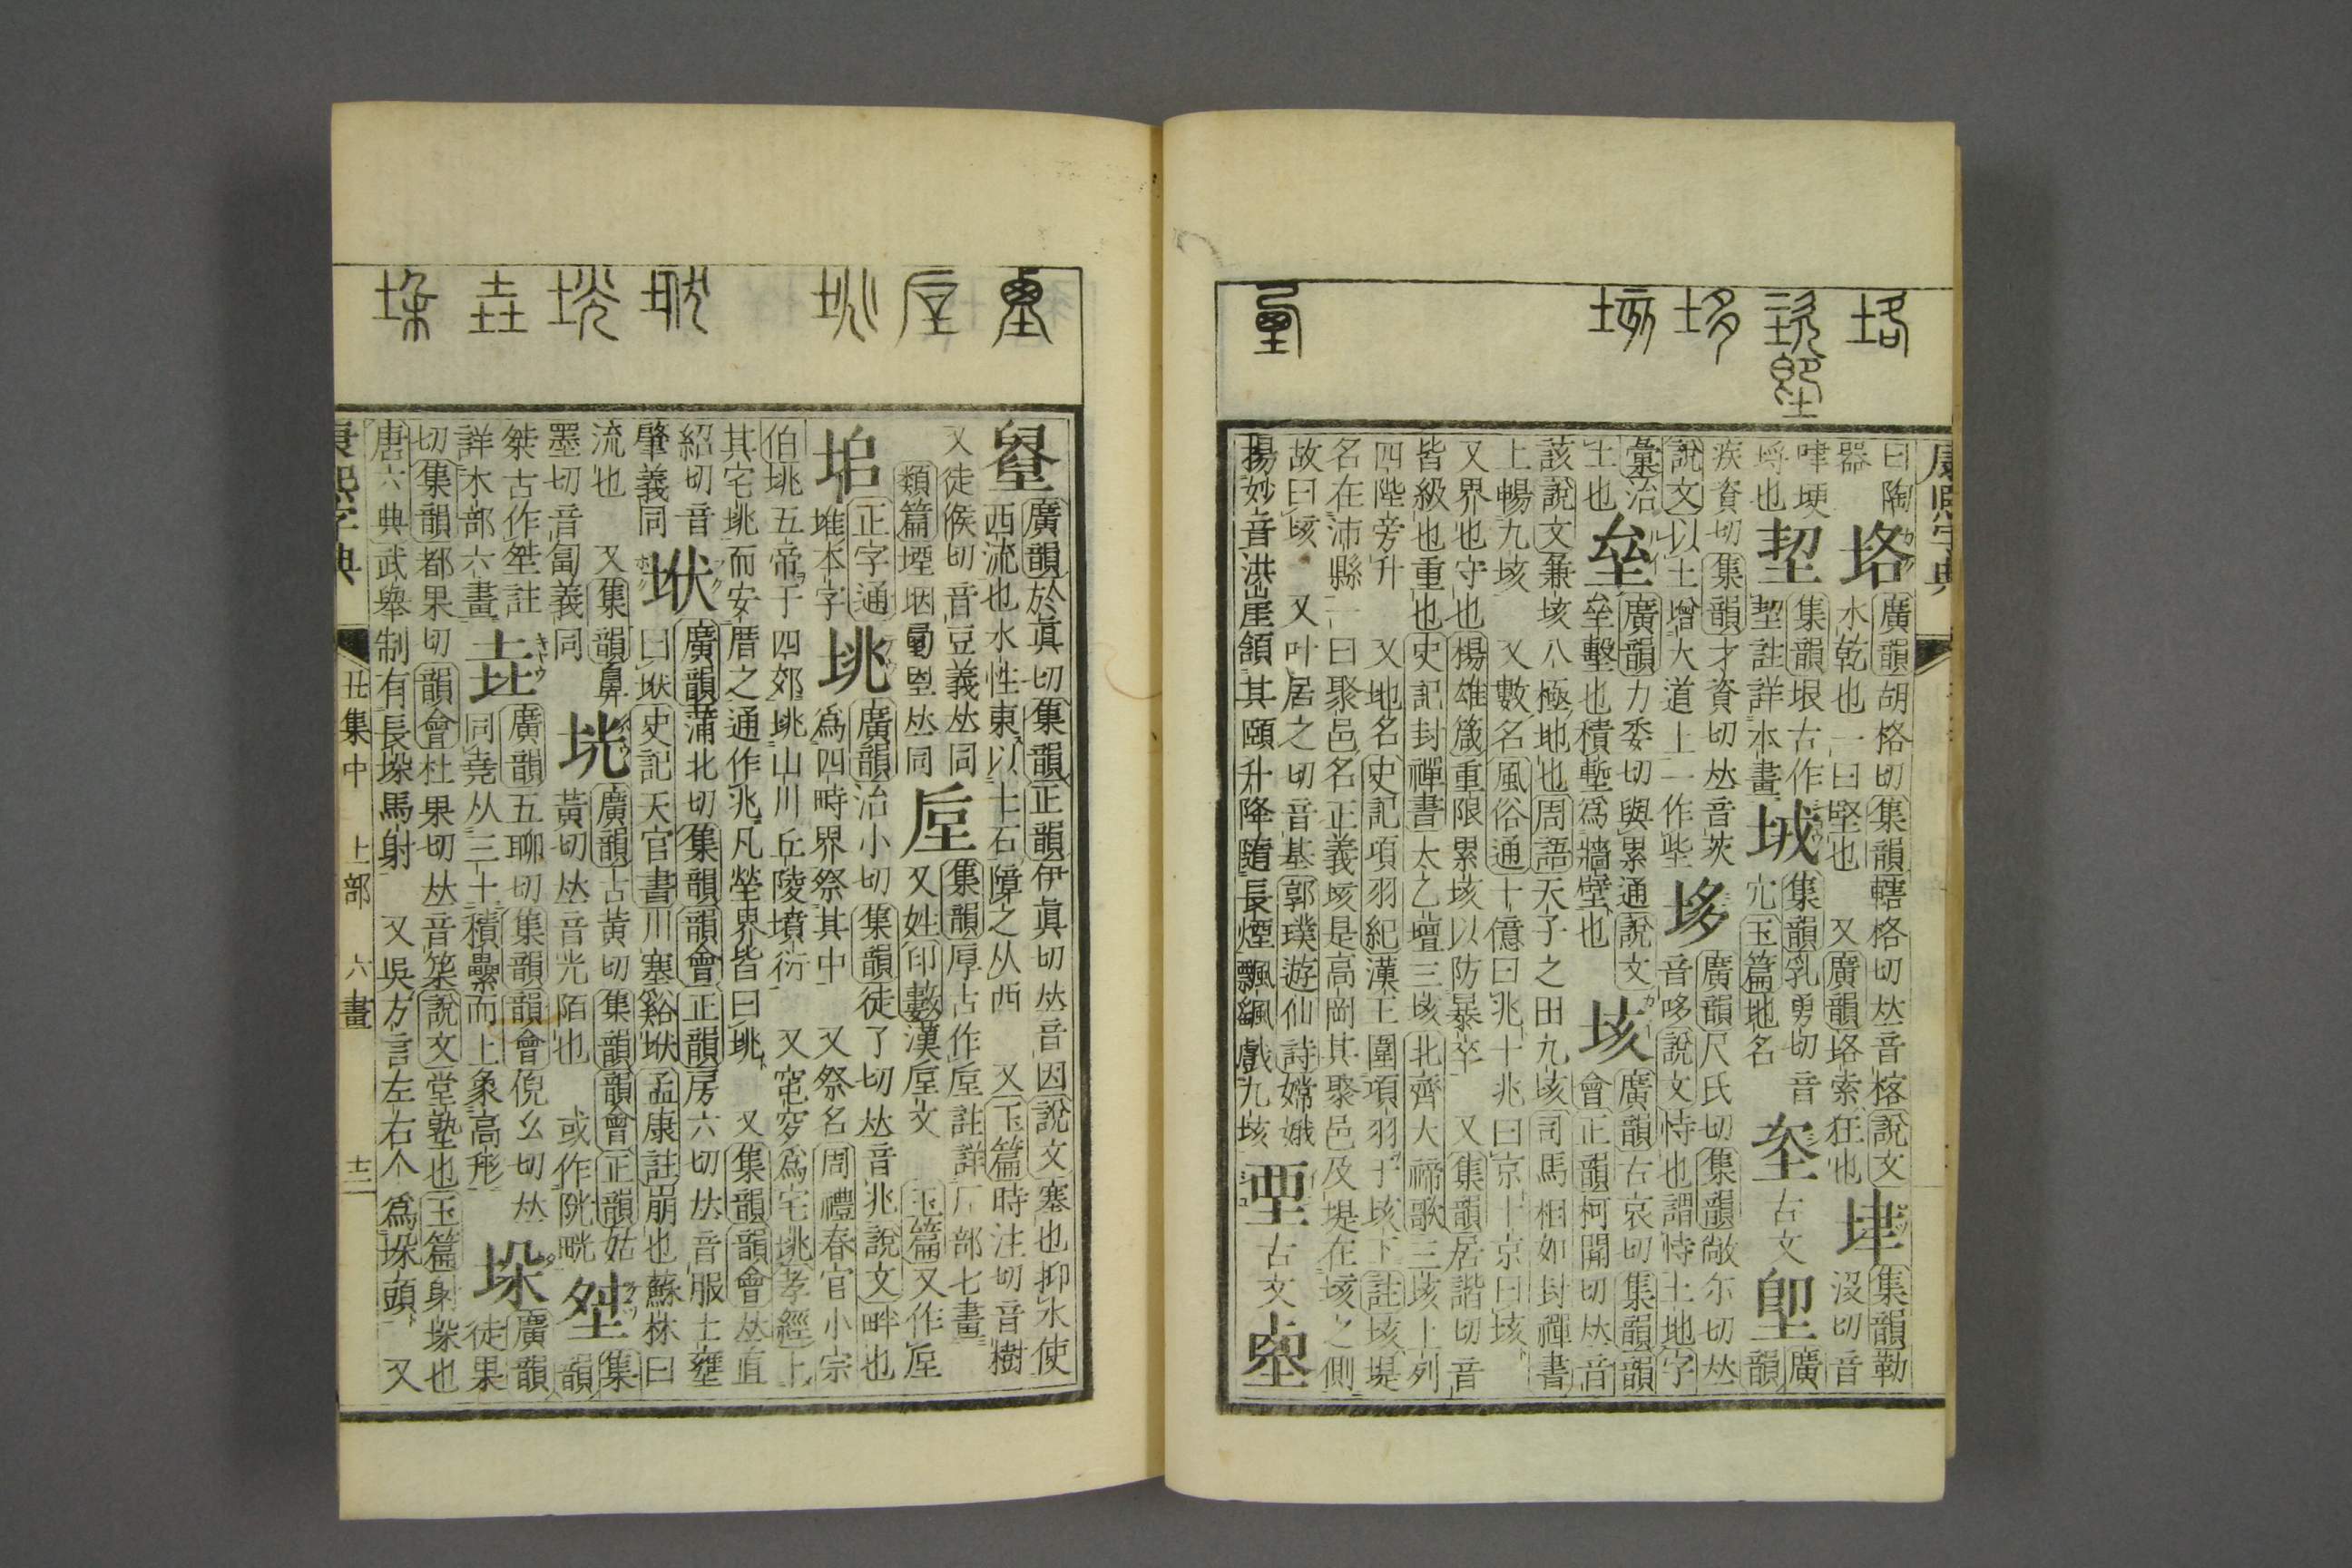 康熙字典
曰陶器
垎 廣韻胡格切集韻轄格切𠀤音楁說文
水乾也一曰堅也 又廣韻垎索狂也
垏 集韻勒沒切音
㖀埂埒也
垎
集韻垠古作
註詳木畫
集韻乳勇切音宂玉篇地名
古文
廣韻
疾資切集韻才資切𠀤音茨
說文以土增大道上一作㘹
垑 廣韻尺氏切集韻敞尒切𠀤音哆說文恃也謂恃土地字彙治土也
垒 廣韻力委切與累通說文垒墼也積墼爲牆壁也
垓 廣韻古哀切集韻韻會正韻柯開切𠀤音該說文兼垓八極地也周語天子之田九垓司馬相如封禪書上暢九垓 又數名風俗通十億曰兆十兆曰京十京曰垓
又界也守也揚雄箴重限累垓以防暴卒 又集韻居諧切音皆級也重也史記封禪書太乙壇三垓北齊大禘歌三垓上列四陛旁升 又地名史記項羽紀漢王圍項羽于垓下註垓堤名在沛縣一曰聚邑名正義垓是高岡其聚邑及堤在垓之側故曰垓 又叶居之切音基郭璞遊仙詩嫦娥揚妙音洪崖頷其頤升降隨長煙飄颻戲九垓
垔 古文
廣韻於真切集韻正韻伊真切𠀤音因說文塞也抑水使西流也水性東以土石障之从西 又玉篇時注切音樹
又徒候切音豆義𠀤同
類篇堙垔𠀤同
垕 集韻厚古作垕註詳厂部七畫
又姓印藪漢垕文 玉篇又作垕
垖 正字通堆本字
垗 廣韻治小切集韻徒了切𠀤音兆說文畔也
爲四畤界祭其中 又祭名周禮春官小宗伯垗五帝于四郊垗山川丘陵墳衍 又窀穸爲宅垗孝經卜其宅垗而安厝之通作兆凡塋界皆曰垗 又集韻韻會𠀤直紹切音肇義同
垘 廣韻蒲北切集韻韻會正韻房六切𠀤音服土壅曰垘史記天官書川塞谿垘孟康註崩也蘇林曰流也 又集韻鼻墨切音匐義同
垙 廣韻古黃切集韻韻會正韻姑黃切𠀤音光陌也 或作㫕
集韻桀古作註詳木部六畫
垚 廣韻五聊切集韻韻會倪幺切𠀤同堯从三土積纍而上象高形
垛 廣韻徒果切集韻都果切韻會杜果切𠀤音垜說文堂塾也玉篇射垛也
唐六典武舉制有長垛馬射 又吳方言左右个爲垛頭 又
康熙字典
丑集中 土部 六畫
十二